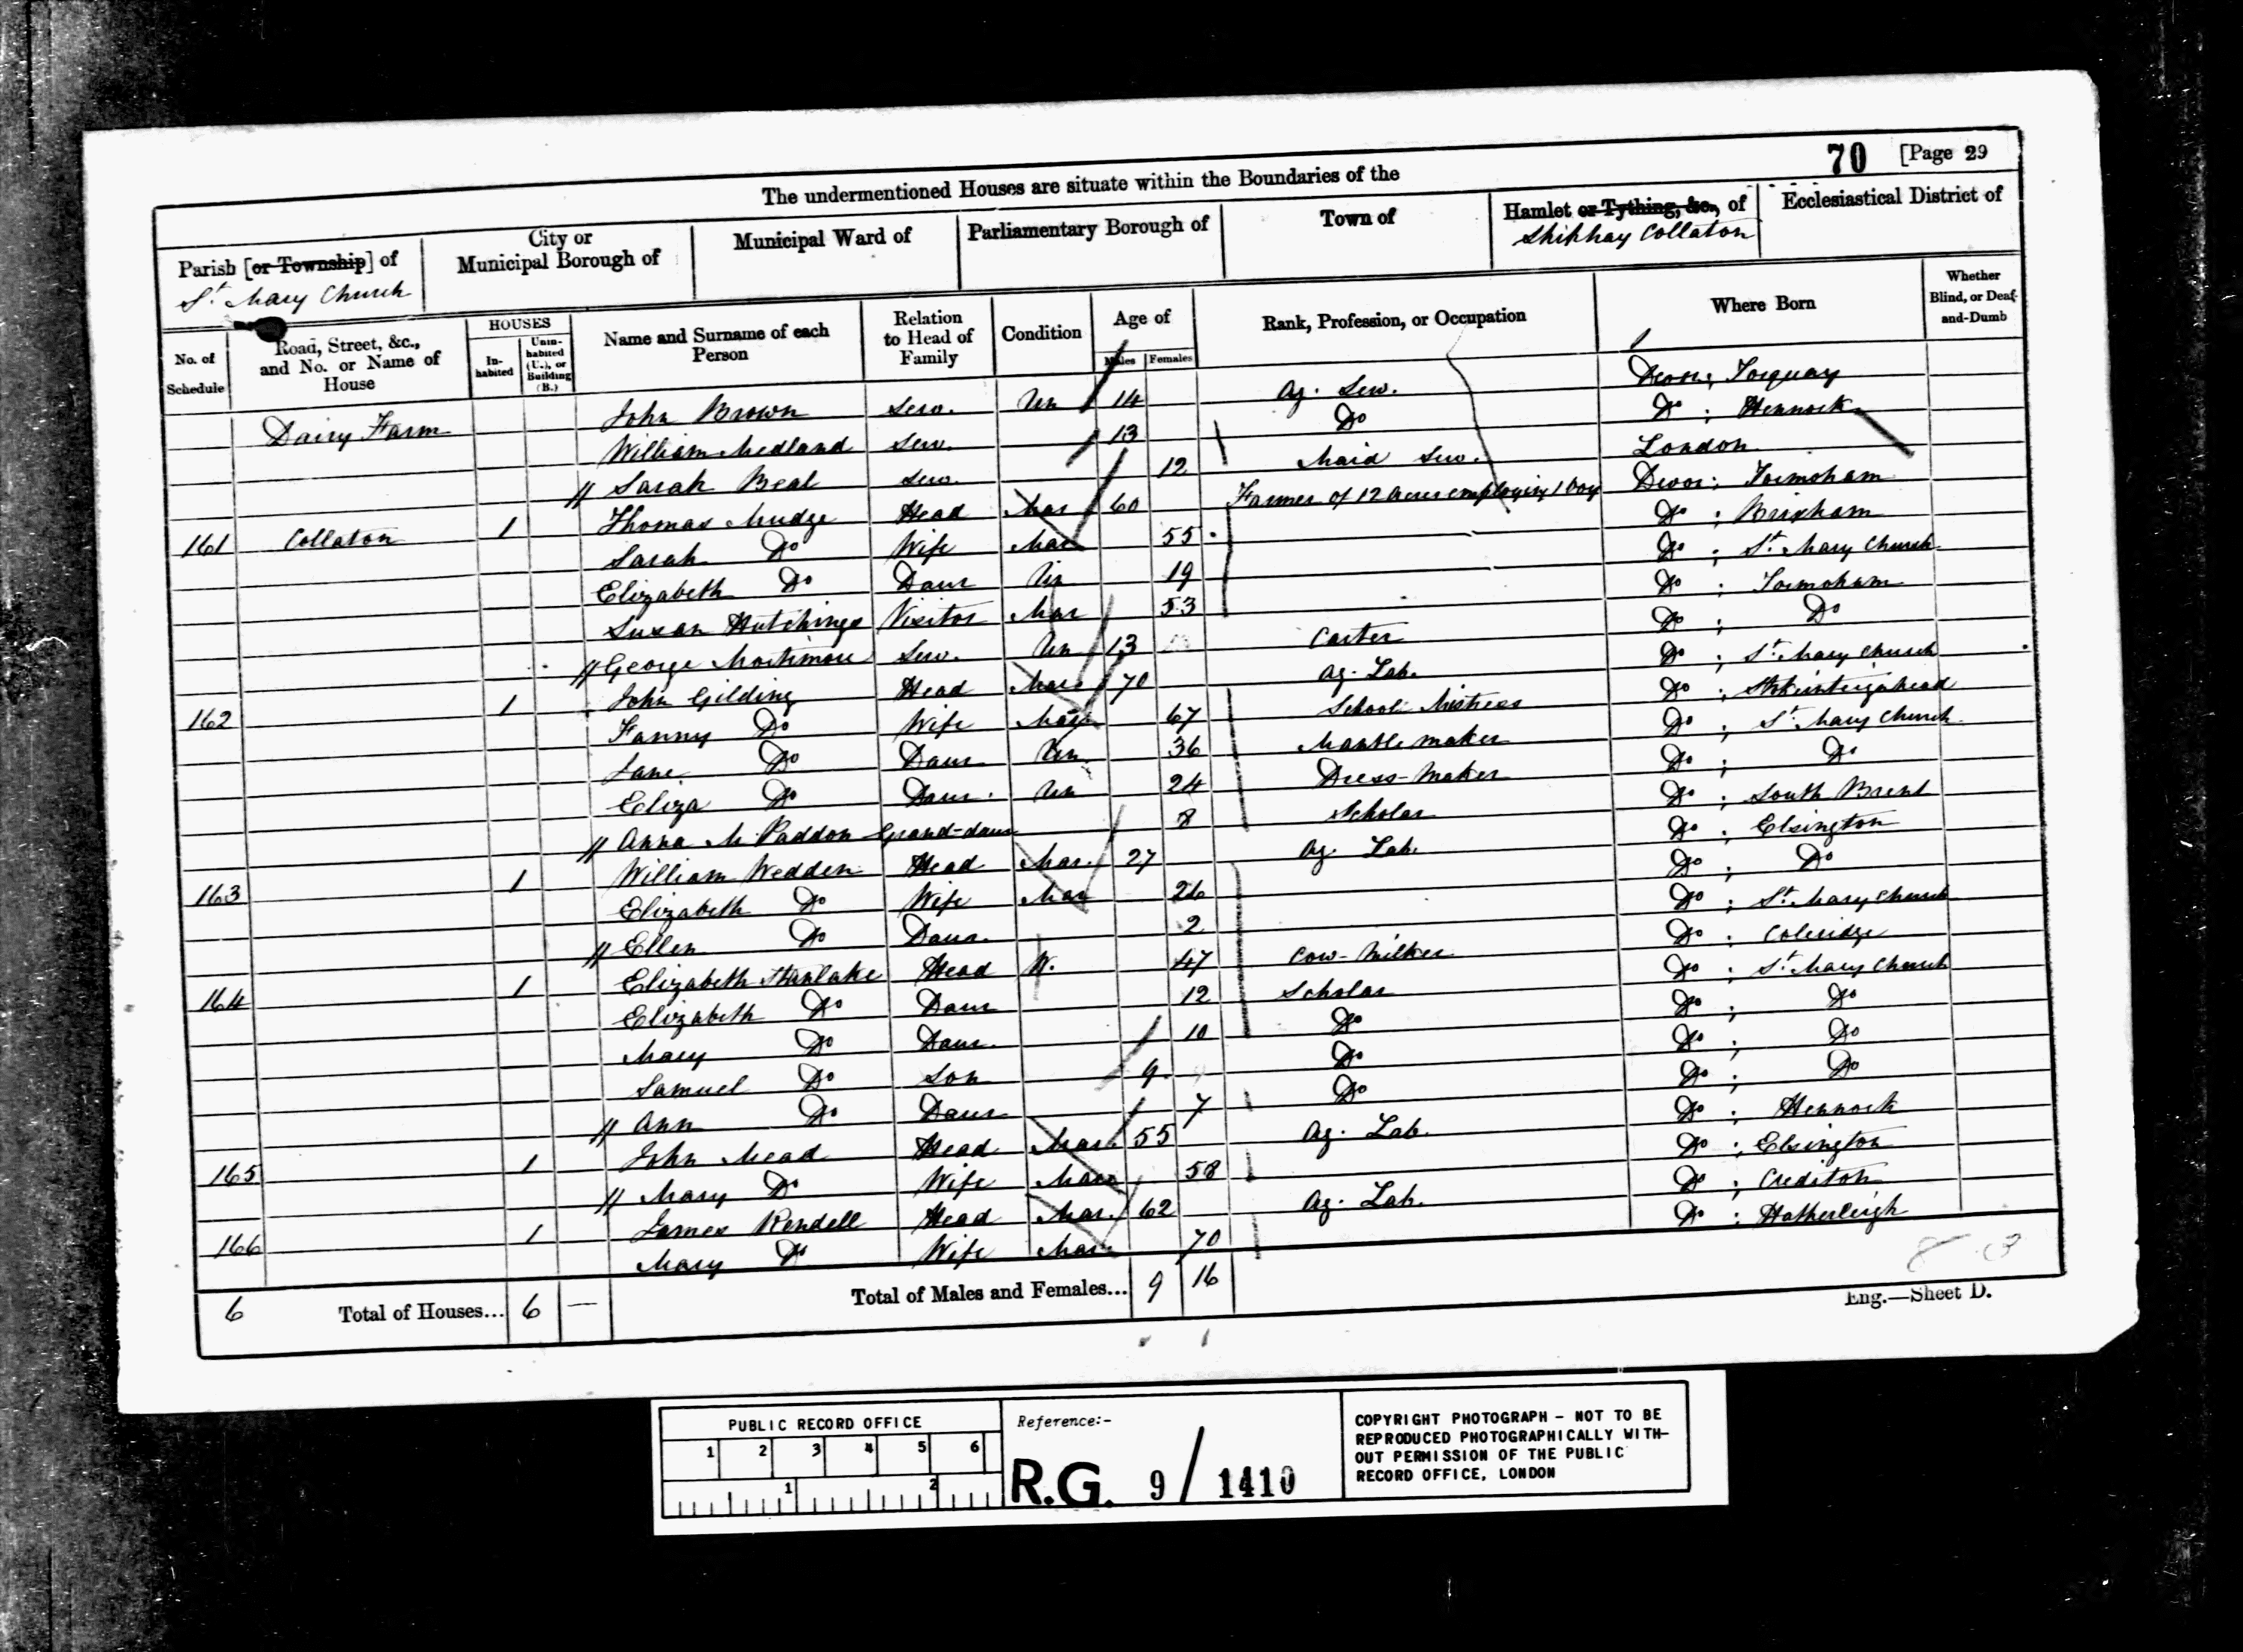 70 [Page 29
The undermentioned Houses are situate within the Boundaries of the
Parish [or Township] of City or Municipal Borough of Municipal Ward of Parliamentary Borough of Town of Hamlet or Tything, &c., of Ecclesiastical District of
St Mary Church Shiphay Collaton
No. of Schedule Road, Street, &c., and No. or Name of House HOUSES In-habited Unin-habited (U.), or Building (B.) Name and Surname of each Person Relation to Head of Family Condition Age of Males Females Rank, Profession, or Occupation Where Born Whether Blind, or Deaf-and-Dumb
Dairy Farm John Brown Serv. Un 14 Ag. Serv. Devon; Torquay
William Medland Serv. 13 Do Do ; Hennock
Sarah Beal Serv. 12 Maid Serv. London
161 Collaton 1 Thomas Mudge Head Mar 60 Farmer of 12 Acres employing 1 boy Devon; Tormoham
Sarah Do Wife Mar 55 Do ; Brixham
Elizabeth Do Daur Un 19 Do ; St Mary Church
Susan Hutchings Visitor Mar 53 Do ; Tormoham
George Mortimore Serv. Un 13 Carter Do ; Do
162 1 John Gilding Head Mar 70 Ag. Lab. Do ; St Mary Church
Fanny Do Wife Mar 67 School Mistress Do ; Stokeinteignhead
Jane Do Daur Un 36 Mantle maker Do ; St Mary Church
Eliza Do Daur. Un 24 Dress-maker Do ; Do
Anna M. Paddon Grand-daur 8 Scholar Do ; South Brent
163 1 William Wedden Head Mar. 27 Ag. Lab. Do ; Elsington
Elizabeth Do Wife Mar 26 Do ; Do
Ellen Do Daur. 2 Do ; St Mary Church
164 1 Elizabeth Stanlake Head W. 47 Cow-Milker Do ; Coleridge
Elizabeth Do Daur 12 Scholar Do ; St Mary Church
Mary Do Daur. 10 Do Do ; Do
Samuel Do Son 9 Do Do ; Do
Ann Do Daur 7 Do Do ; Do
165 1 John Mead Head Mar. 55 Ag. Lab. Do ; Hennock
Mary Do Wife Mar 58 Do ; Elsington
166 1 James Rendell Head Mar. 62 Ag. Lab. Do ; Crediton
Mary Do Wife Mar 70 Do ; Hatherleigh
6 Total of Houses... 6 — Total of Males and Females... 9 16
Eng.—Sheet D.
PUBLIC RECORD OFFICE
1 2 3 4 5 6
1 2
Reference:-
R.G. 9/1410
COPYRIGHT PHOTOGRAPH - NOT TO BE
REPRODUCED PHOTOGRAPHICALLY WITH-
OUT PERMISSION OF THE PUBLIC
RECORD OFFICE, LONDON